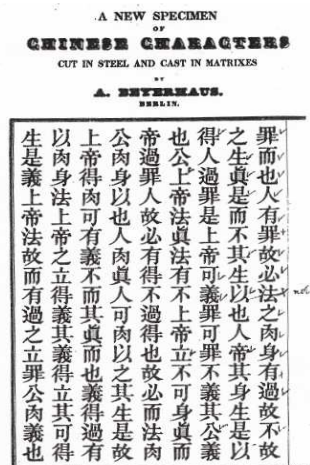 A NEW SPECIMEN
OF
CHINESE CHARACTERS
CUT IN STEEL AND CAST IN MATRIXES
BY
A. BEYERHAUS.
BERLIN.
罪而也人有罪故必法之肉身有過故不故
之生眞是而不其生以也人帝其身生是以
得人過罪是上帝可義罪可罪不義其公義
也公上帝法眞法有不上帝立不可身眞而
帝過罪人故必有得不過得也故必而法肉
公肉身以也人肉眞人可肉以之其生是故
上帝得肉可有義不而其眞而也義得過有
以肉身法上帝之立得義其義得立其可得
生是義上帝法故而有過之立罪公肉義也